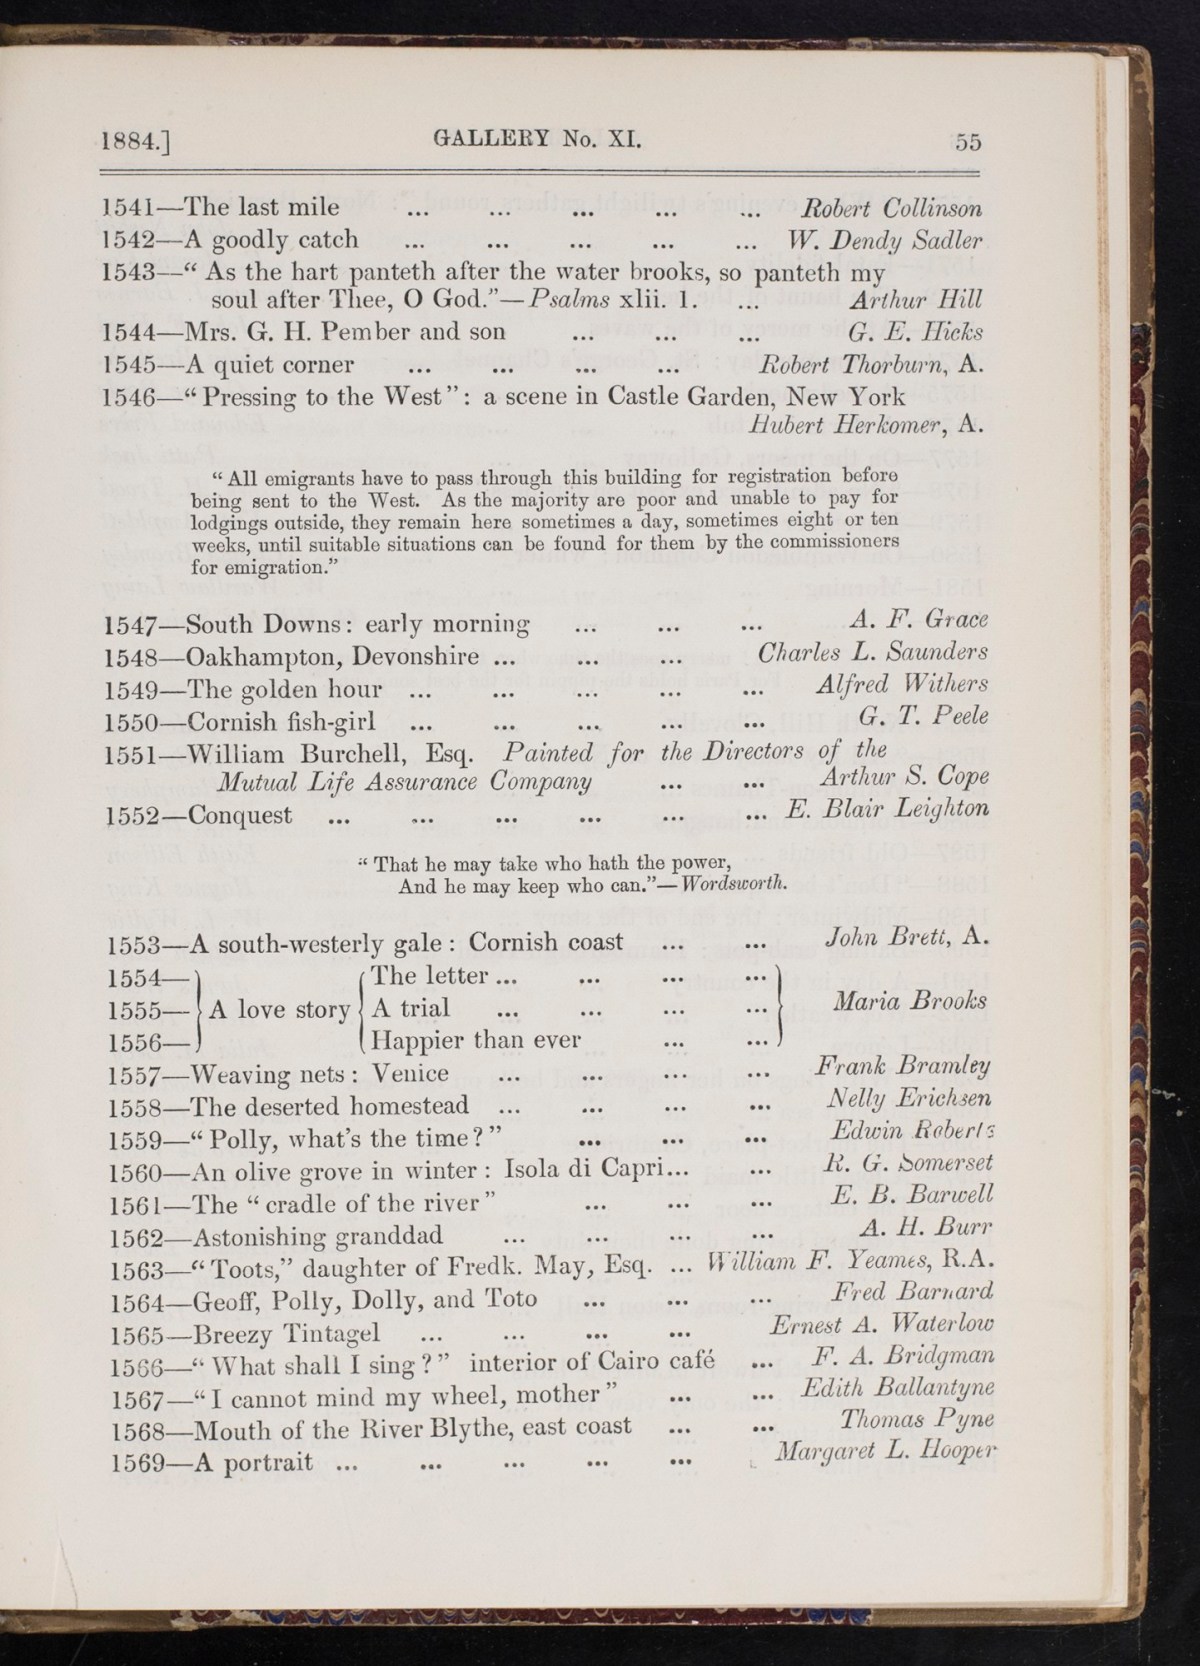 1884.] GALLERY No. XI. 55
1541—The last mile ... ... ... ... ... Robert Collinson
1542—A goodly catch ... ... ... ... ... W. Dendy Sadler
1543—“ As the hart panteth after the water brooks, so panteth my
soul after Thee, O God.”—Psalms xlii. 1. ... Arthur Hill
1544—Mrs. G. H. Pember and son ... ... ... G. E. Hicks
1545—A quiet corner ... ... ... ... Robert Thorburn, A.
1546—“ Pressing to the West”: a scene in Castle Garden, New York
Hubert Herkomer, A.
“ All emigrants have to pass through this building for registration before
being sent to the West. As the majority are poor and unable to pay for
lodgings outside, they remain here sometimes a day, sometimes eight or ten
weeks, until suitable situations can be found for them by the commissioners
for emigration.”
1547—South Downs: early morning ... ... ... A. F. Grace
1548—Oakhampton, Devonshire ... ... ... Charles L. Saunders
1549—The golden hour ... ... ... ... ... Alfred Withers
1550—Cornish fish-girl ... ... ... ... ... G. T. Peele
1551—William Burchell, Esq. Painted for the Directors of the
Mutual Life Assurance Company ... ... Arthur S. Cope
1552—Conquest ... ... ... ... ... ... E. Blair Leighton
“ That he may take who hath the power,
And he may keep who can.”—Wordsworth.
1553—A south-westerly gale : Cornish coast ... ... John Brett, A.
1554— The letter ... ... ... ...
1555— A love story A trial ... ... ... ... Maria Brooks
1556— Happier than ever ... ...
1557—Weaving nets : Venice ... ... ... ... Frank Bramley
1558—The deserted homestead ... ... ... ... Nelly Erichsen
1559—“ Polly, what’s the time ? ” ... ... ... Edwin Roberts
1560—An olive grove in winter : Isola di Capri... ... R. G. Somerset
1561—The “ cradle of the river ” ... ... ... E. B. Barwell
1562—Astonishing granddad ... ... ... ... A. H. Burr
1563—“ Toots,” daughter of Fredk. May, Esq. ... William F. Yeames, R.A.
1564—Geoff, Polly, Dolly, and Toto ... ... ... Fred Barnard
1565—Breezy Tintagel ... ... ... ... Ernest A. Waterlow
1566—“ What shall I sing ? ” interior of Cairo café ... F. A. Bridgman
1567—“ I cannot mind my wheel, mother ” ... ... Edith Ballantyne
1568—Mouth of the River Blythe, east coast ... ... Thomas Pyne
1569—A portrait ... ... ... ... ... Margaret L. Hooper